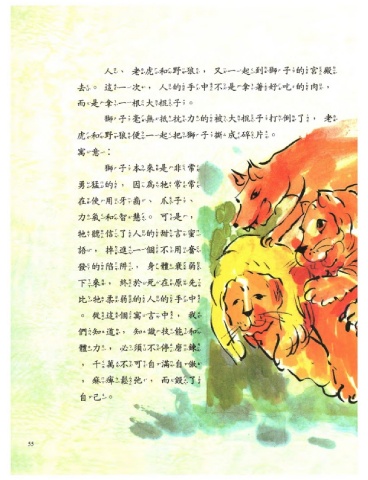 人、老虎和野狼，又一起到獅子的宮殿
去。這一次，人的手中不是拿著好吃的肉，
而是拿一根大棍子。
獅子毫無抵抗力的被大棍子打倒了，老
虎和野狼便一起把獅子撕成碎片。
寓意：
獅子本來是非常
勇猛的，因為牠常常
在使用牙齒、爪子、
力氣和智慧。可是，
牠聽信了人的甜言蜜
語，掉進一個不用奮
發的陷阱，身體衰弱
下來，終於死在原先
比牠柔弱的人的手中
。從這個寓言中，我
們知道，知識技能和
體力，必須不停磨鍊
，千萬不可自滿自傲
，麻痺鬆弛，而毀了
自己。
55